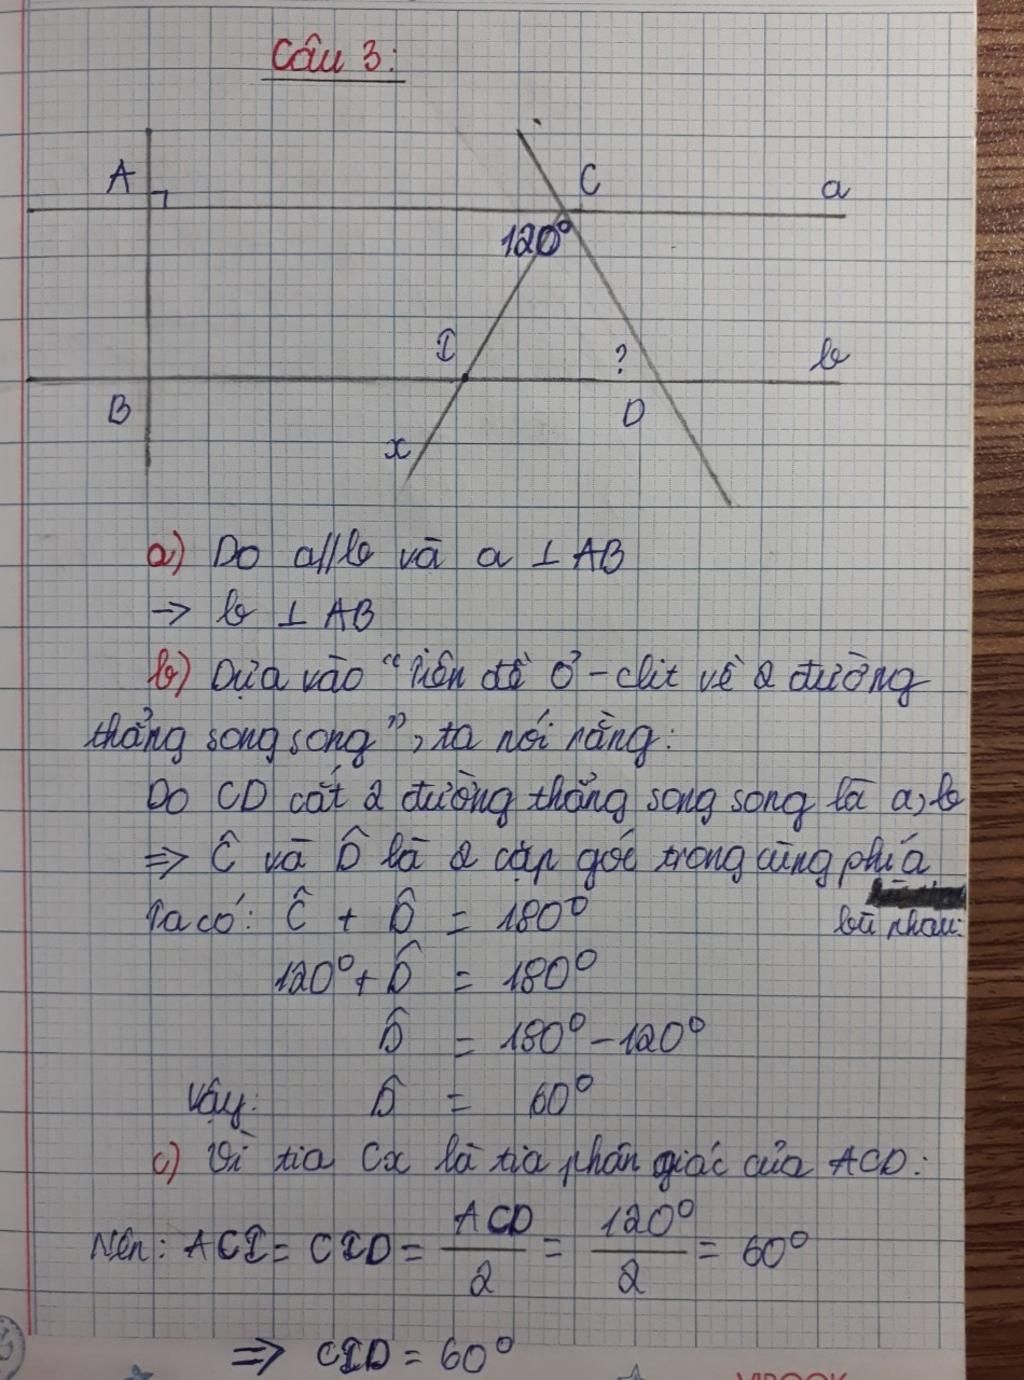 Câu 3:
A
C
a
120°
I
?
b
B
D
x
a) Do a//b và a ⊥ AB
→ b ⊥ AB
b) Dựa vào “Tiên đề Ơ-clit về 2 đường
thẳng song song”, ta nói rằng:
Do CD cắt 2 đường thẳng song song là a, b
=> Ĉ và D̂ là 2 cặp góc trong cùng phía
bù nhau:
Ta có: Ĉ + D̂ = 180°
120° + D̂ = 180°
D̂ = 180° - 120°
Vậy: D̂ = 60°
c) Vì tia Cx là tia phân giác của ACD:
Nên: ACI = CID = ACD/2 = 120°/2 = 60°
=> CID = 60°